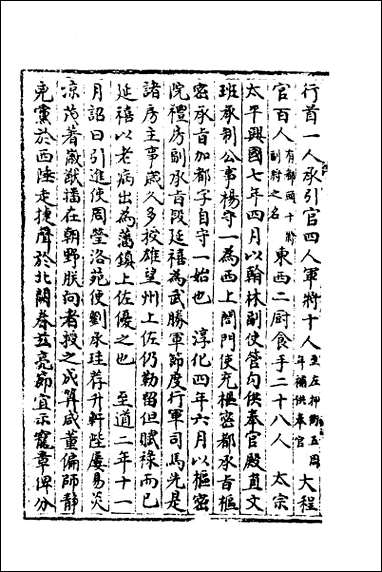 行首一人承引官四人軍將十人至左押衙五周年補供奉官大程
官百人有都頭十將副尉之名東西二厨食手二十八人 太宗
太平興國七年四月以翰林副使管勾供奉官殿直文
班承制公事楊守一為西上閤門使充樞密都承旨樞
密承旨加都字自守一始也 淳化四年六月以樞密
院禮房副承旨段延禧為武勝軍節度行軍司馬先是
諸房主事歲久多授雄望州上佐仍勒留但賦祿而已
延禧以老病出為藩鎮上佐優之也 至道二年十一
月詔曰引進使周瑩洛苑使劉承珪荐升軒陛屢易炎
凉茂著嚴猷播在朝野朕向者授之成算咸董偏師靜
兇黨於西陸走捷聲於北闕眷茲亮節宜示寵章俾分